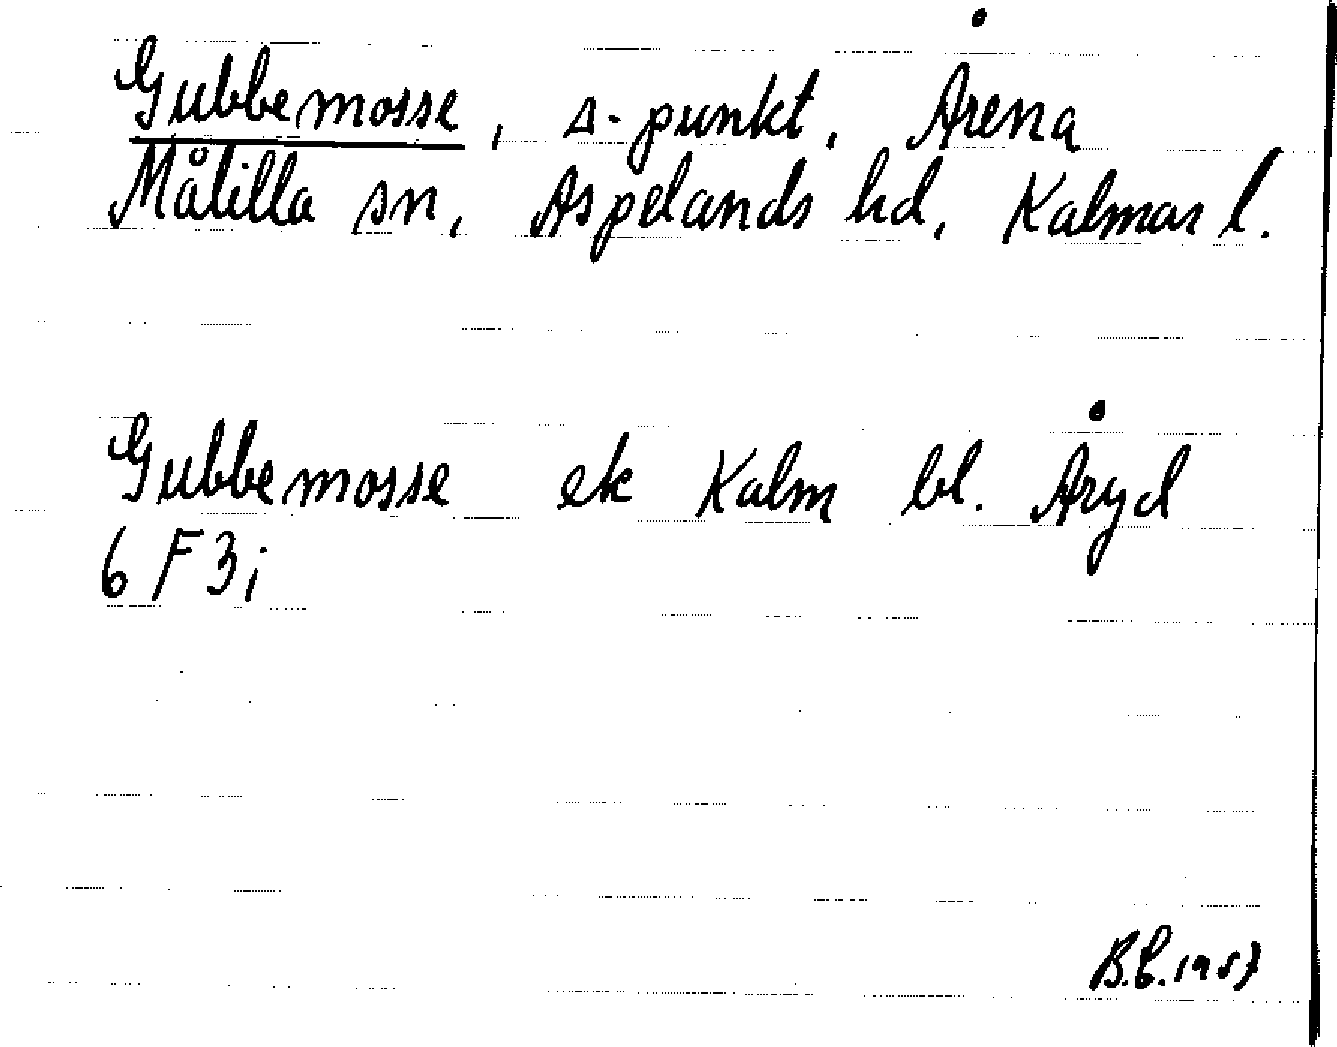 Gubbemosse, Δ-punkt, Årena
Målilla sn, Aspelands hd, Kalmar l.
Gubbemosse ek Kalm bl. Åryd
6 F 3 i
B.E. 1957